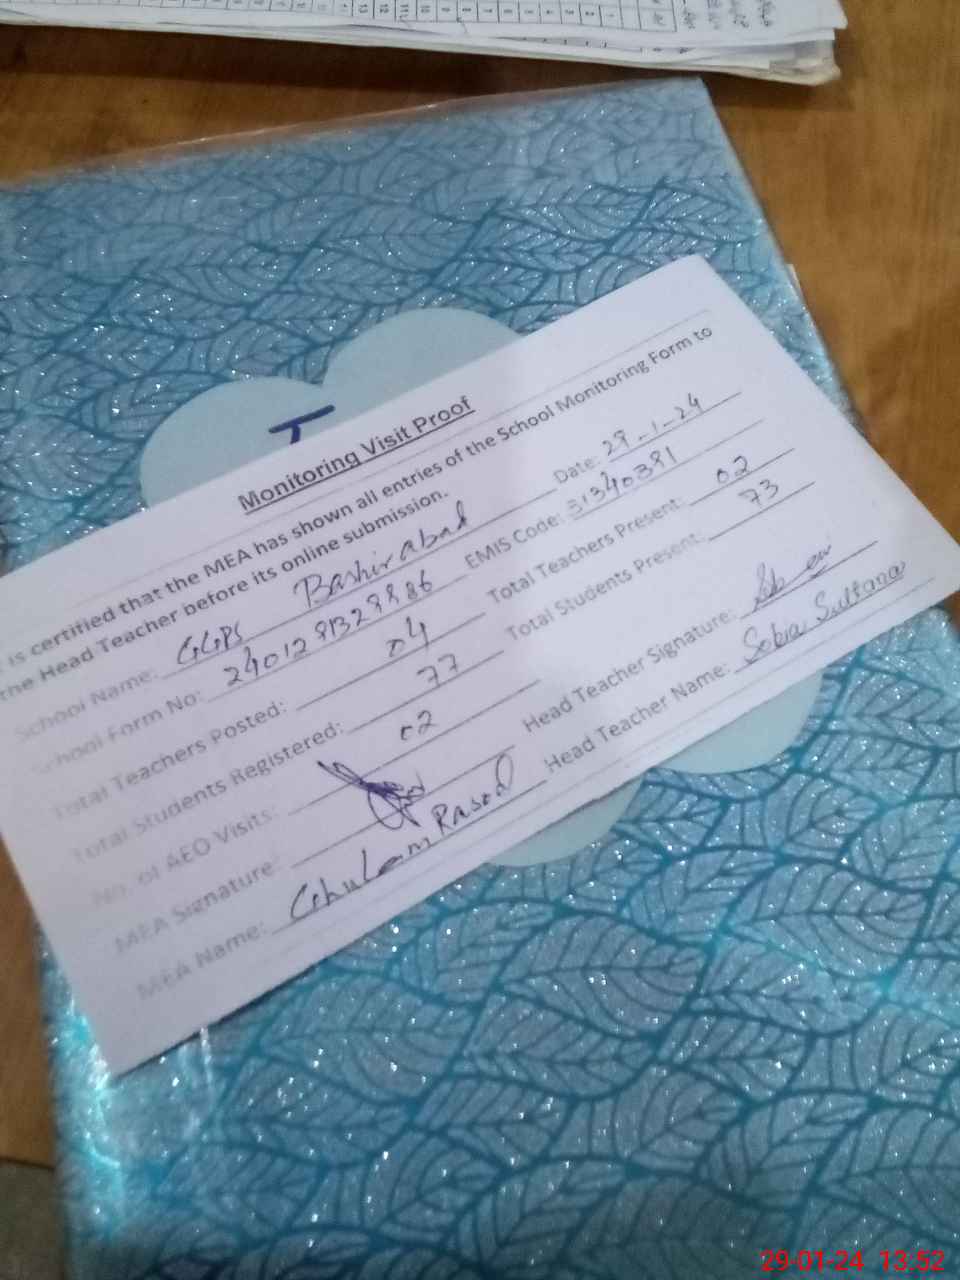 Monitoring Visit Proof
is certified that the MEA has shown all entries of the School Monitoring Form to
the Head Teacher before its online submission.
School Name: GGPS Bashirabad Date: 29-1-24
School Form No: EMIS Code: 31340391
Total Teachers Posted: 04 Total Teachers Present: 02
Total Students Registered: 77 Total Students Present: 73
No. of AEO Visits: 02
MEA Signature: Head Teacher Signature:
MEA Name: Ghulam Rasool Head Teacher Name: Sobia Sultana
29-01-24 13:52